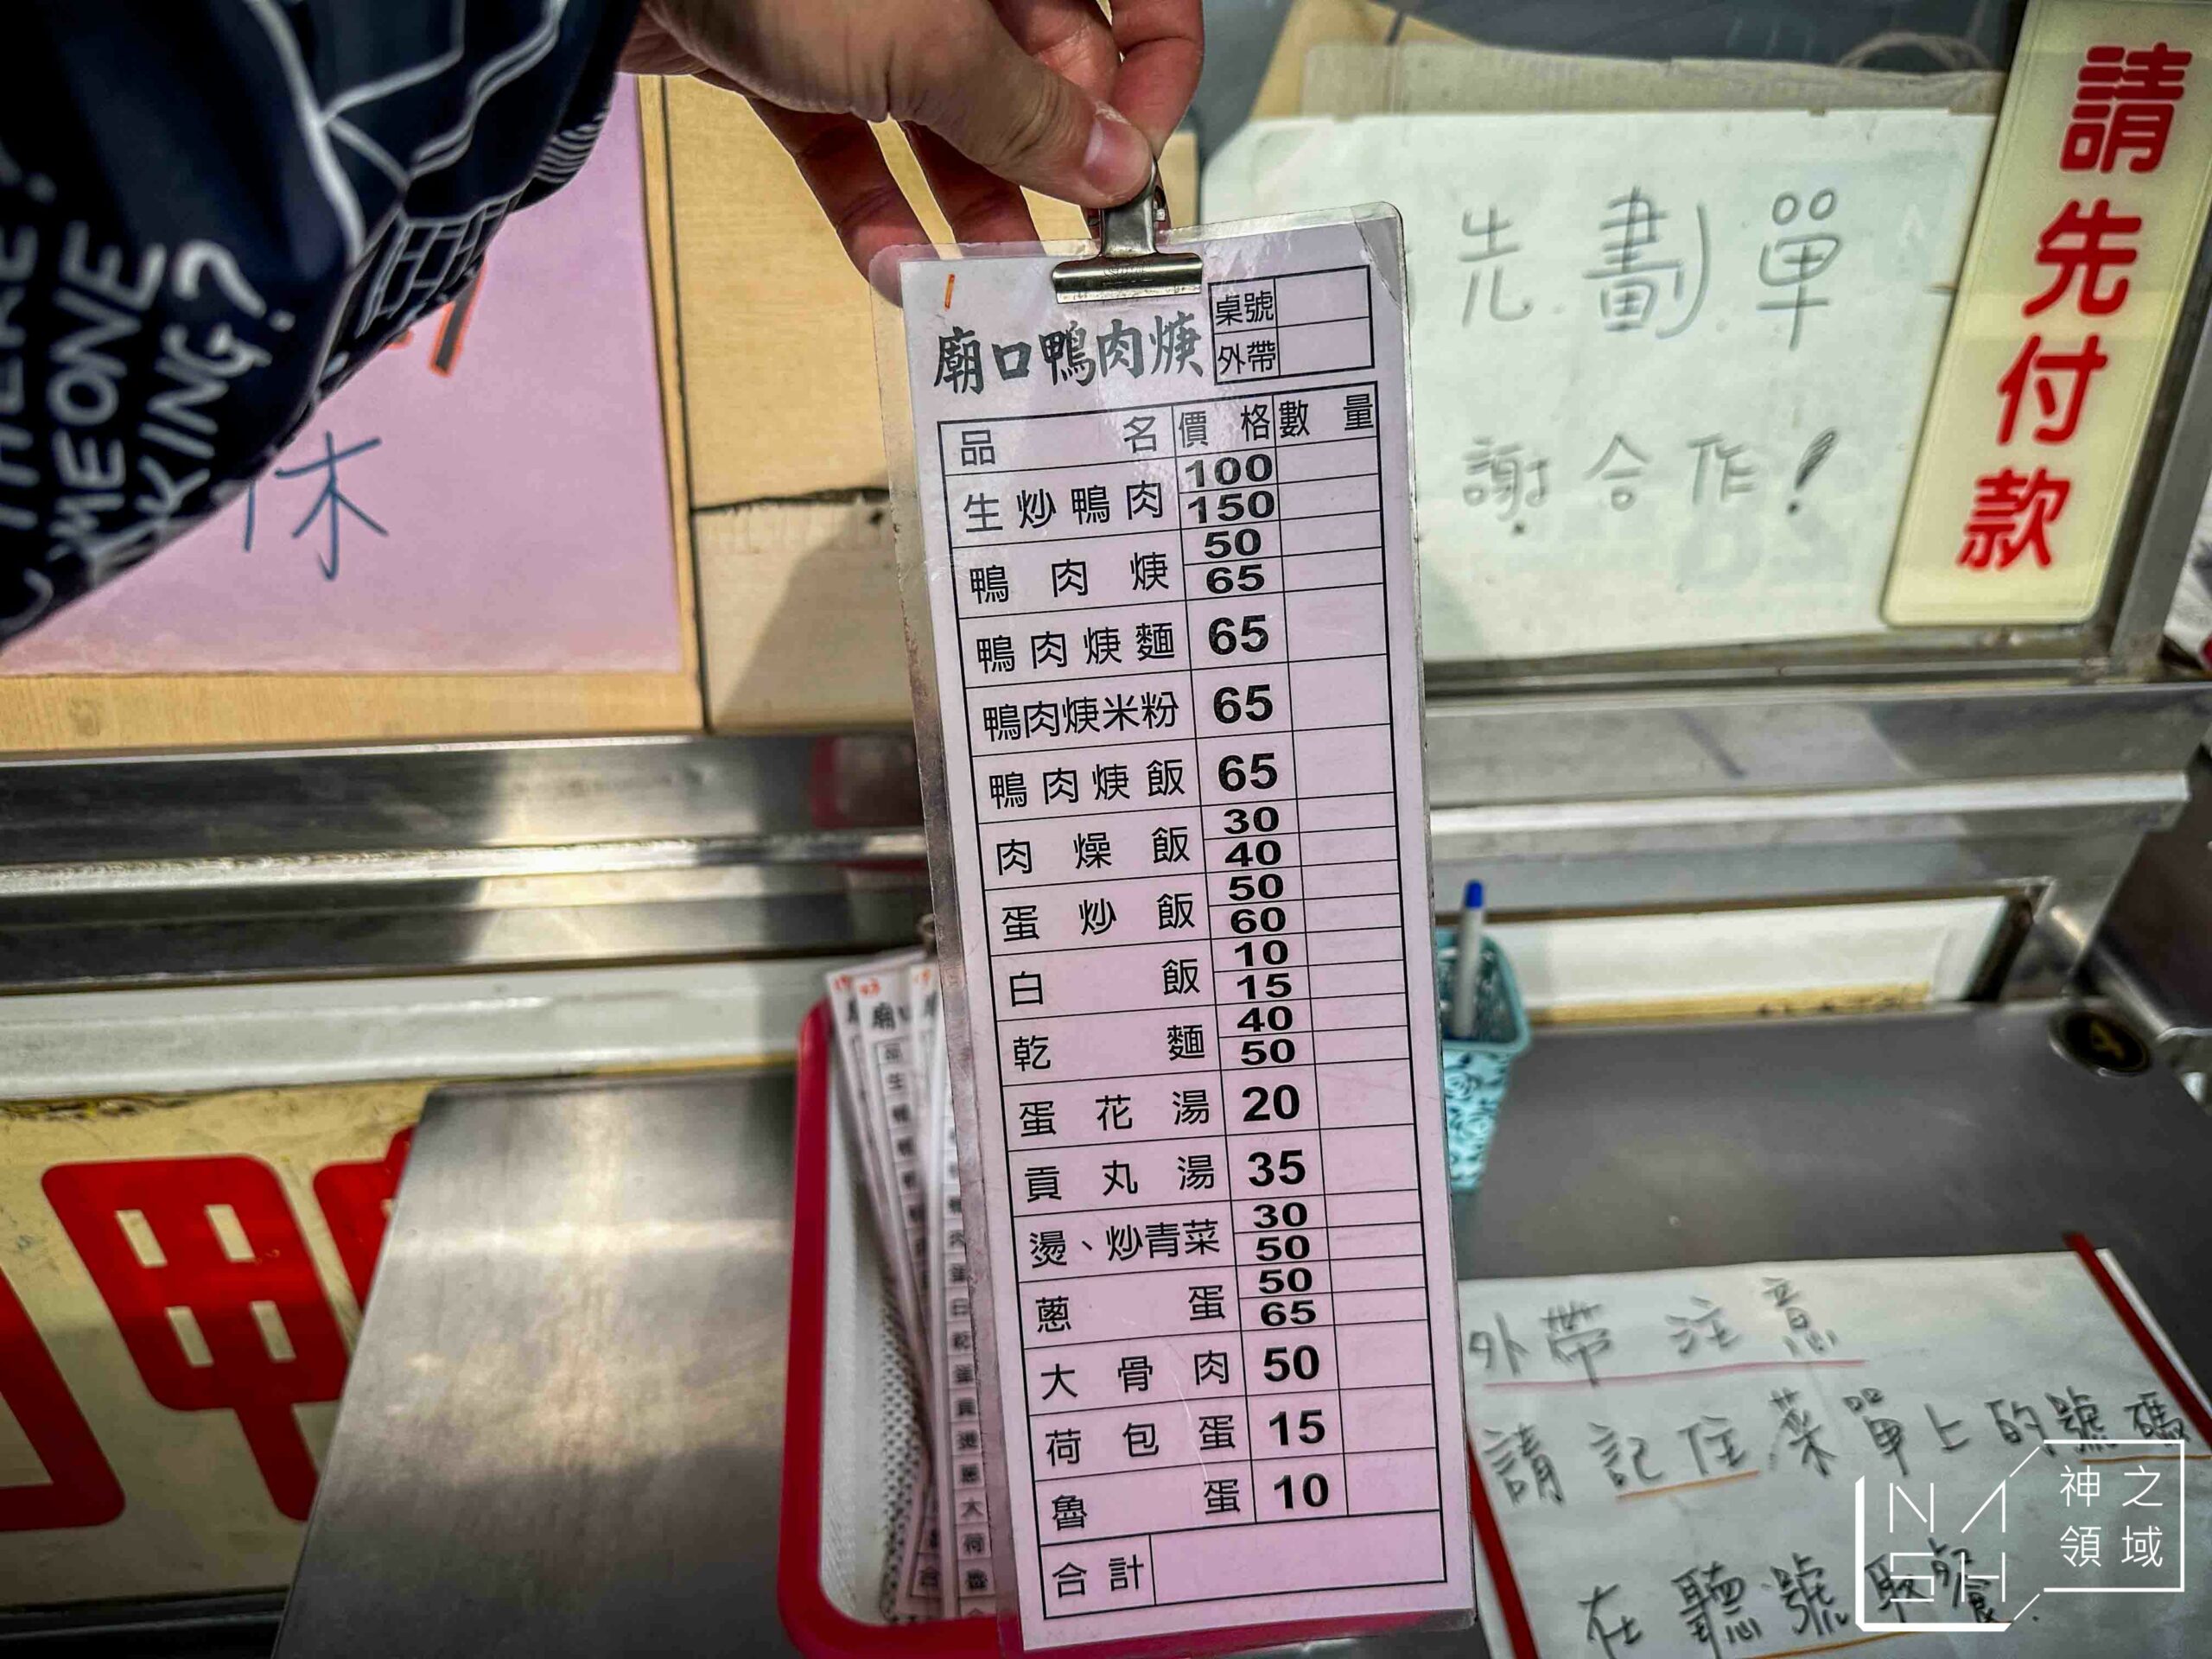 請先付款
先劃單
謝合作!
休
MEONE
KING?
1
廟口鴨肉焿
桌號
外帶
品名 價格 數量
生炒鴨肉 100 150
鴨肉焿 50 65
鴨肉焿麵 65
鴨肉焿米粉 65
鴨肉焿飯 65
肉燥飯 30 40
蛋炒飯 50 60
白飯 10 15
乾麵 40 50
蛋花湯 20
貢丸湯 35
燙、炒青菜 30 50
蔥蛋 50 65
大骨肉 50
荷包蛋 15
魯蛋 10
合計
外帶注意
請記住菜單上的號碼
在聽號取餐.
NASH
神之
領域